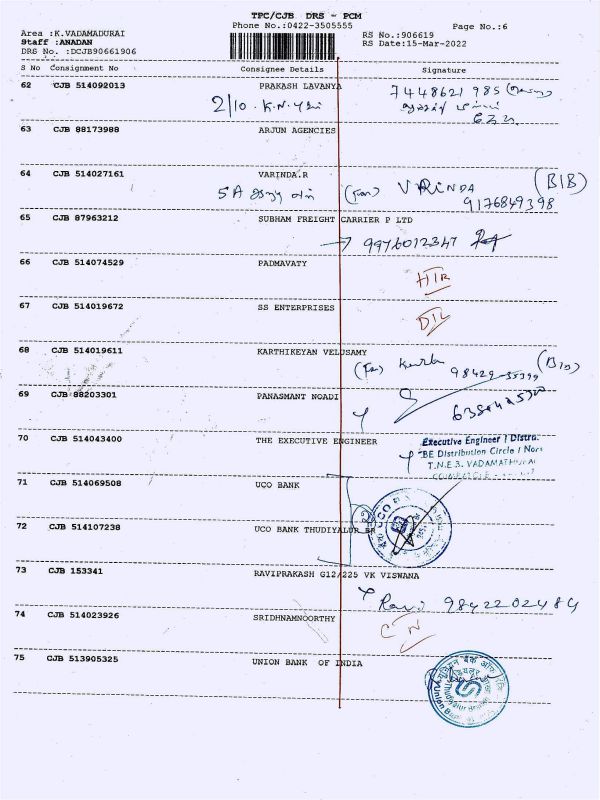 TPC/CJB DRS - PCM
Phone No.:0422-3505555
Page No.:6
Area :K.VADAMADURAI
Staff :ANADAN
DRS No. :DCJB90661906
RS No.:906619
RS Date:15-Mar-2022
S No Consignment No Consignee Details Signature
62 CJB 514092013 PRAKASH LAVANYA
7448621985
2/10 . K.N.
63 CJB 88173988 ARJUN AGENCIES
64 CJB 514027161 VARINDA.R
5A
VARINDA (BIB)
9176849398
65 CJB 87963212 SUBHAM FREIGHT CARRIER P LTD
9976012347
66 CJB 514074529 PADMAVATY
67 CJB 514019672 SS ENTERPRISES
DIL
68 CJB 514019611 KARTHIKEYAN VELUSAMY
98429
69 CJB 88203301 PANASMANT NOADI
70 CJB 514043400 THE EXECUTIVE ENGINEER
Executive Engineer / Distri.
BE Distribution Circle / Nor
T.N.E.B. VADAMATHURAI
71 CJB 514069508 UCO BANK
72 CJB 514107238 UCO BANK THUDIYALUR BR
73 CJB 153341 RAVIPRAKASH G12/225 VK VISWANA
Ravi 9842202484
74 CJB 514023926 SRIDHNAMNOORTHY
CN
75 CJB 513905325 UNION BANK OF INDIA
यूनियन बैंक ऑफ
Union Bank